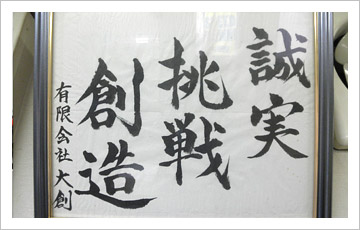 誠実
挑戦
創造
有限会社 大創